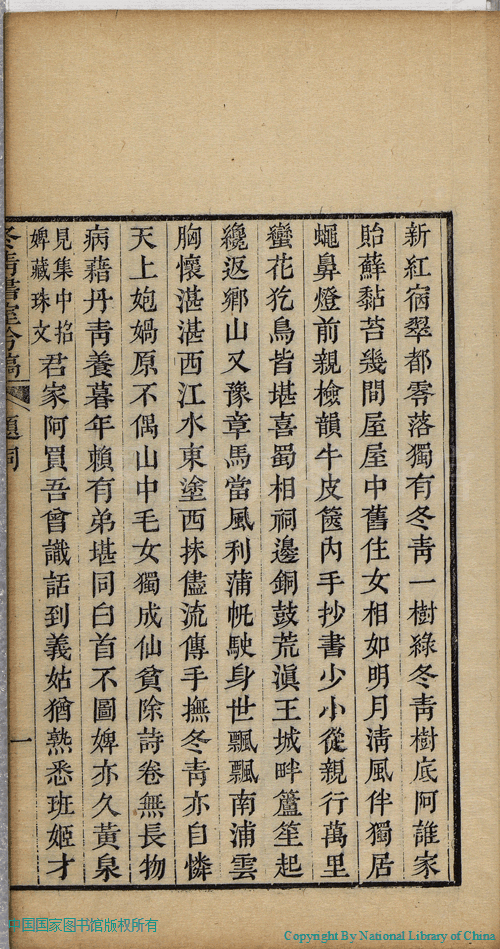 新紅宿翠都零落獨有冬青一樹綠冬青樹底阿誰家
貽蘚黏苔幾間屋屋中舊住女相如明月淸風伴獨居
蠅鼻燈前親檢韻牛皮篋內手抄書少小從親行萬里
蠻花犵鳥皆堪喜蜀相祠邊銅鼓荒滇王城畔籚笙起
纔返鄉山又豫章馬當風利蒲帆駛身世飄飄南浦雲
胸懷湛湛西江水東塗西抹儘流傳手撫冬靑亦自憐
天上媕媧原不偶山中毛女獨成仙貧除詩卷無長物
病藉丹靑養暮年賴有弟堪同白首不圖婢亦久黃泉
見集中掐
婢藏珠文
君家阿買吾曾識話到義姑猶熟悉班姬才
冬靑書室吟稿
題詞
一
中国国家图书馆版权所有
Copyright By National Library of China